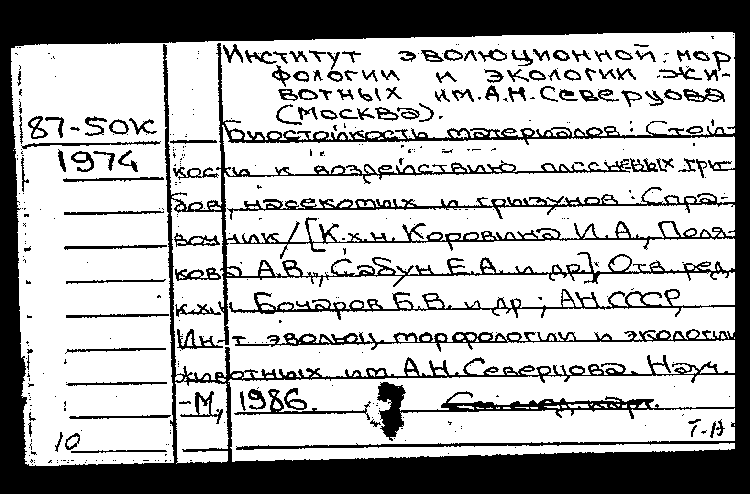 Институт эволюционной мор-
фологии и экологии жи-
вотных им. А.Н. Северцова
(Москва).
87-50К
Биостойкость материалов: Стой-
1974
кость к воздействию плесневых гри-
бов, насекомых и грызунов: Спра-
вочник/[К.х.н. Коровина И.А., Поля-
кова А.В., Сабун Е.А. и др.]; Отв. ред.
к.х.н. Бочаров Б.В. и др.; АН СССР,
Ин-т эволюц. морфологии и экологии
животных им. А.Н. Северцова. Науч.
-М, 1986.
См. след. карт.
10